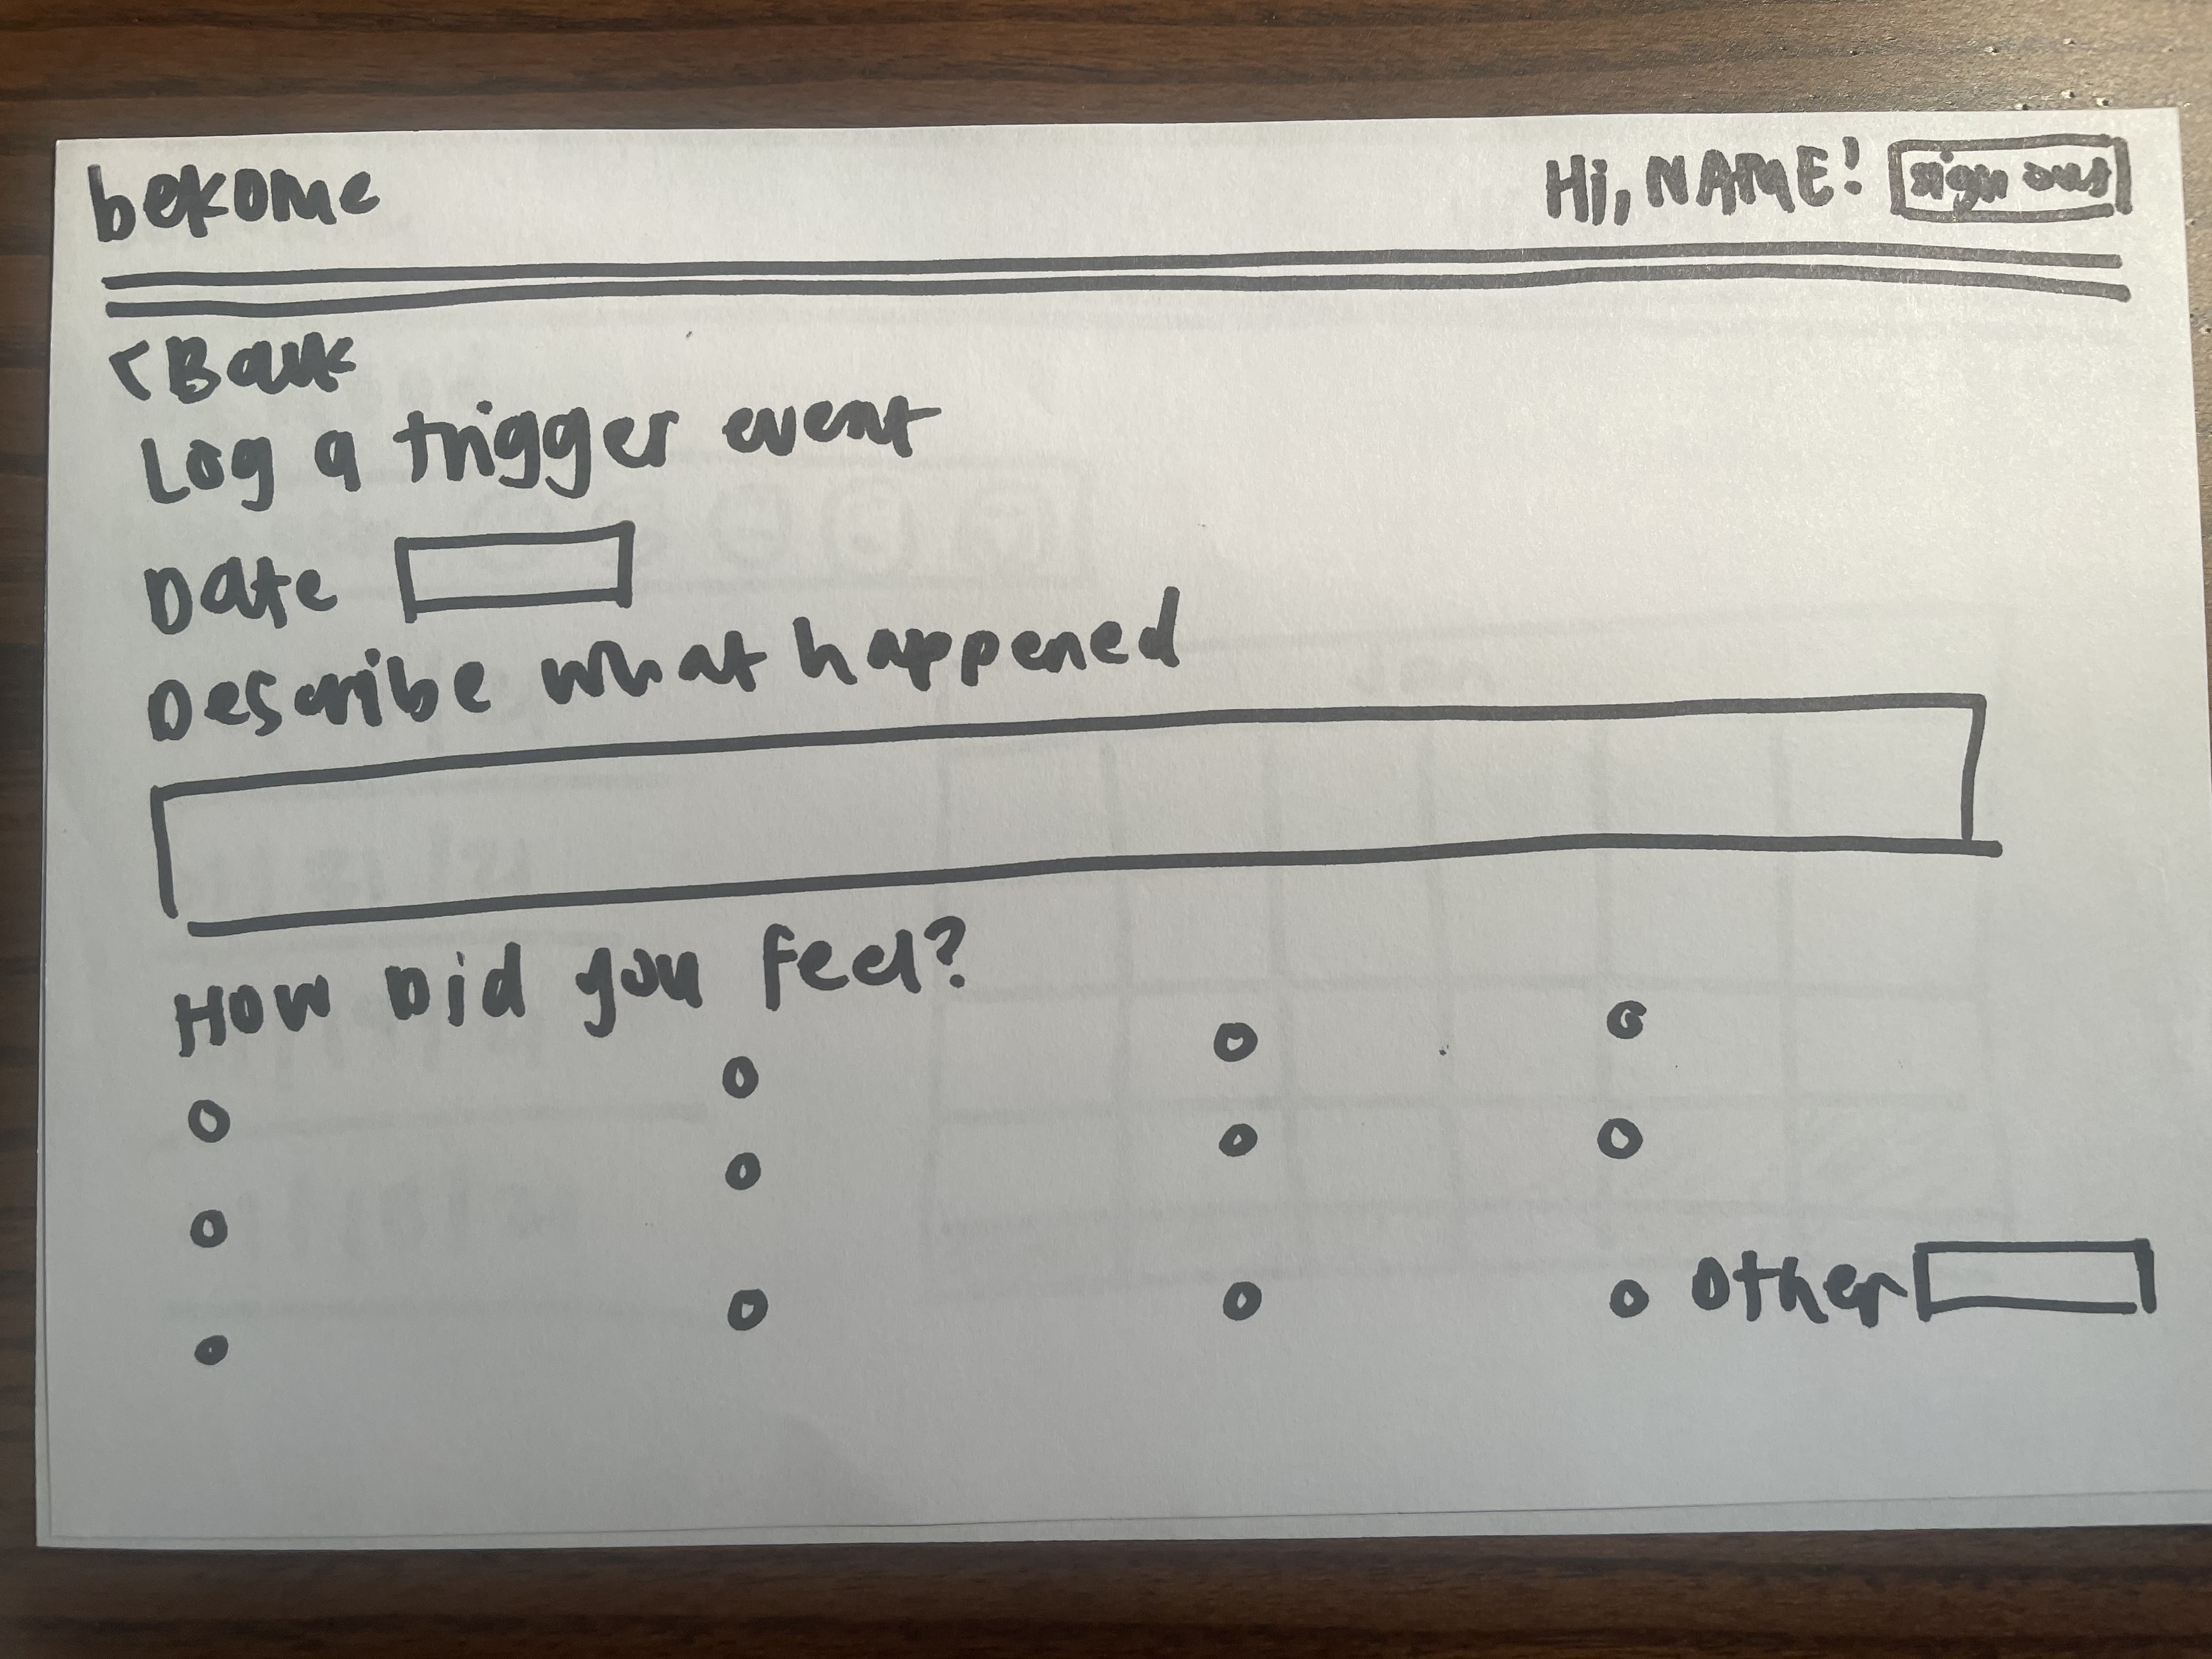 bekome
Hi, NAME! sign out
< Back
Log a trigger event
Date
Describe what happened
How Did you feel?
Other